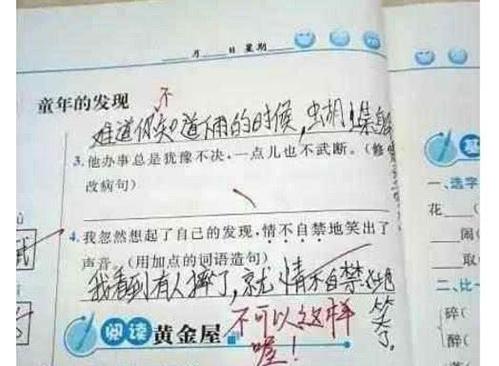 月 日 星期
童年的发现
不
难道你知道下雨的时候,虫
3.他办事总是犹豫不决,一点儿也不武断。(修
改病句)
4.我忽然想起了自己的发现,情不自禁地笑出了
声音。(用加点的词语造句)
我看到有人摔了,就情不自禁地
笑了。
不可以这样
喔!
阅读 黄金屋
一、选字
花 (
闹(
取(
二、比一
碎(
醉(